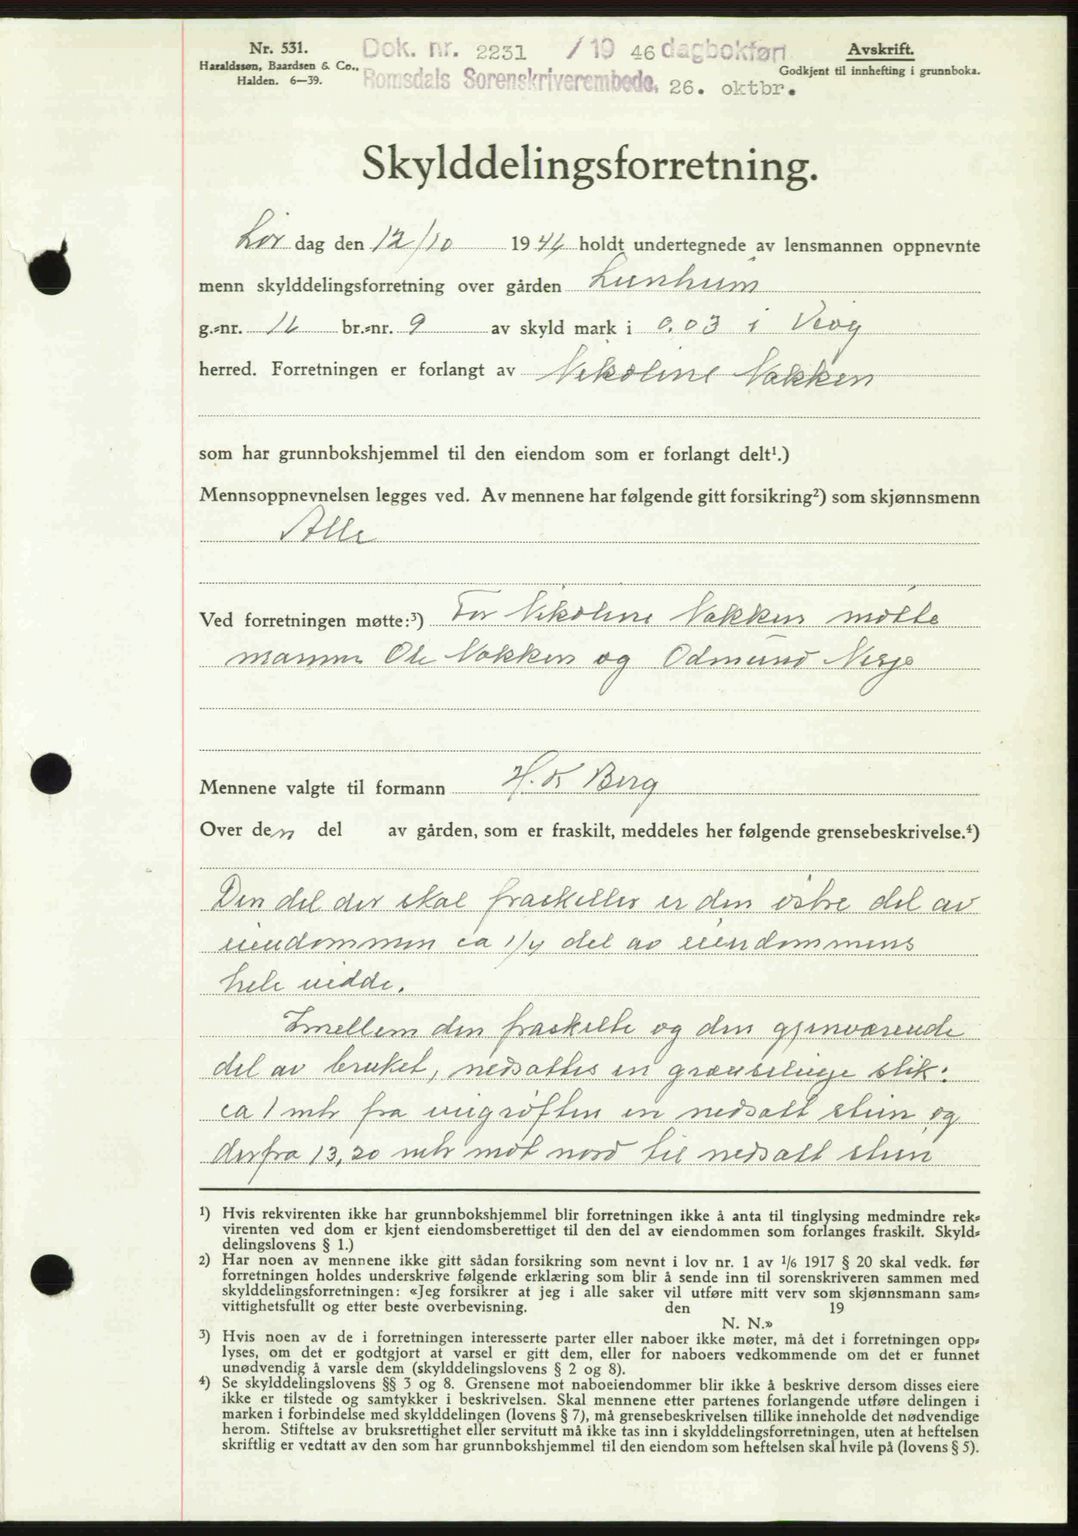 Nr. 531.
Haraldssøn, Baardsen & Co.,
Halden. 6—39.
Dok. nr. 2231 /19 46 dagbokført
Romsdals Sorenskriverembede, 26. oktbr.
Avskrift.
Godkjent til innhefting i grunnboka.
Skylddelingsforretning.
Lør dag den 12/10 1946 holdt undertegnede av lensmannen oppnevnte
menn skylddelingsforretning over gården Lunheim
g.-nr. 16 br.-nr. 9 av skyld mark i 0.03 i Veøy
herred. Forretningen er forlangt av Nikoline Nakken
som har grunnbokshjemmel til den eiendom som er forlangt delt¹.)
Mennsoppnevnelsen legges ved. Av mennene har følgende gitt forsikring²) som skjønnsmenn
Alle
Ved forretningen møtte:³) For Nikoline Nakken møtte
mannen Ole Nakken og Odmund Nesje
Mennene valgte til formann H. K Berg
Over den del av gården, som er fraskilt, meddeles her følgende grensebeskrivelse.⁴)
Den del der skal fraskilles er den østre del av
eiendommen ca 1/4 del av eiendommens
hele vidde.
Imellem den fraskilte og den gjenværende
del av bruket, nedsattes en grænselinje slik:
ca 1 mtr fra veigrøften en nedsatt stein og
derfra 13,20 mtr mot nord til nedsatt stein
¹) Hvis rekvirenten ikke har grunnbokshjemmel blir forretningen ikke å anta til tinglysing medmindre rek-
virenten ved dom er kjent eiendomsberettiget til den del av eiendommen som forlanges fraskilt. Skyld-
delingslovens § 1.)
²) Har noen av mennene ikke gitt sådan forsikring som nevnt i lov nr. 1 av 1/6 1917 § 20 skal vedk. før
forretningen holdes underskrive følgende erklæring som blir å sende inn til sorenskriveren sammen med
skylddelingsforretningen: «Jeg forsikrer at jeg i alle saker vil utføre mitt verv som skjønnsmann sam-
vittighetsfullt og etter beste overbevisning. den 19
N. N.»
³) Hvis noen av de i forretningen interesserte parter eller naboer ikke møter, må det i forretningen opp-
lyses, om det er godtgjort at varsel er gitt dem, eller for naboers vedkommende om det er funnet
unødvendig å varsle dem (skylddelingslovens § 2 og 8).
⁴) Se skylddelingslovens §§ 3 og 8. Grensene mot naboeiendommer blir ikke å beskrive dersom disses eiere
ikke er tilstede og samtykker i beskrivelsen. Skal mennene etter partenes forlangende utføre delingen i
marken i forbindelse med skylddelingen (lovens § 7), må grensebeskrivelsen tillike inneholde det nødvendige
herom. Stiftelse av bruksrettighet eller servitutt må ikke tas inn i skylddelingsforretningen, uten at heftelsen
skriftlig er vedtatt av den som har grunnbokshjemmel til den eiendom som heftelsen skal hvile på (lovens § 5).